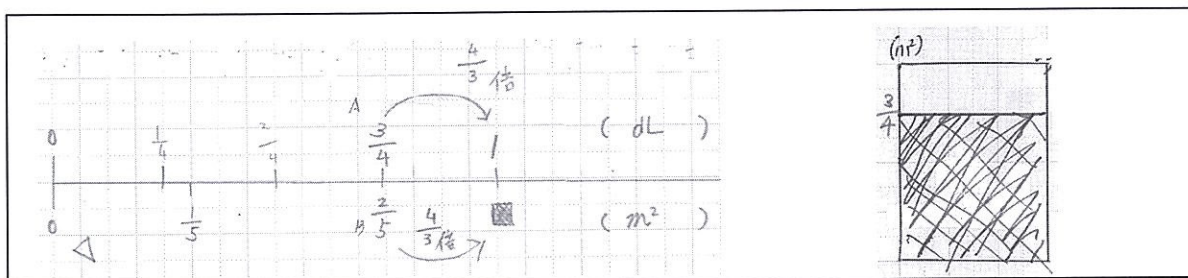 4/3倍
A
0 1/4 2/4 3/4 1 (dL)
0 1/5 2/5 (m²)
B 4/3倍
(m²)
3/4